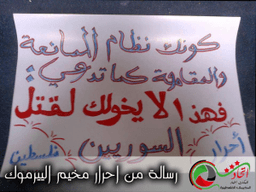 كونك نظام الممانعة
والمقاومة كما تدعي:
فهذا لا يخولك لقتل
السوريين
أحرار
فلسطين
رسالة من أحرار مخيم اليرموك